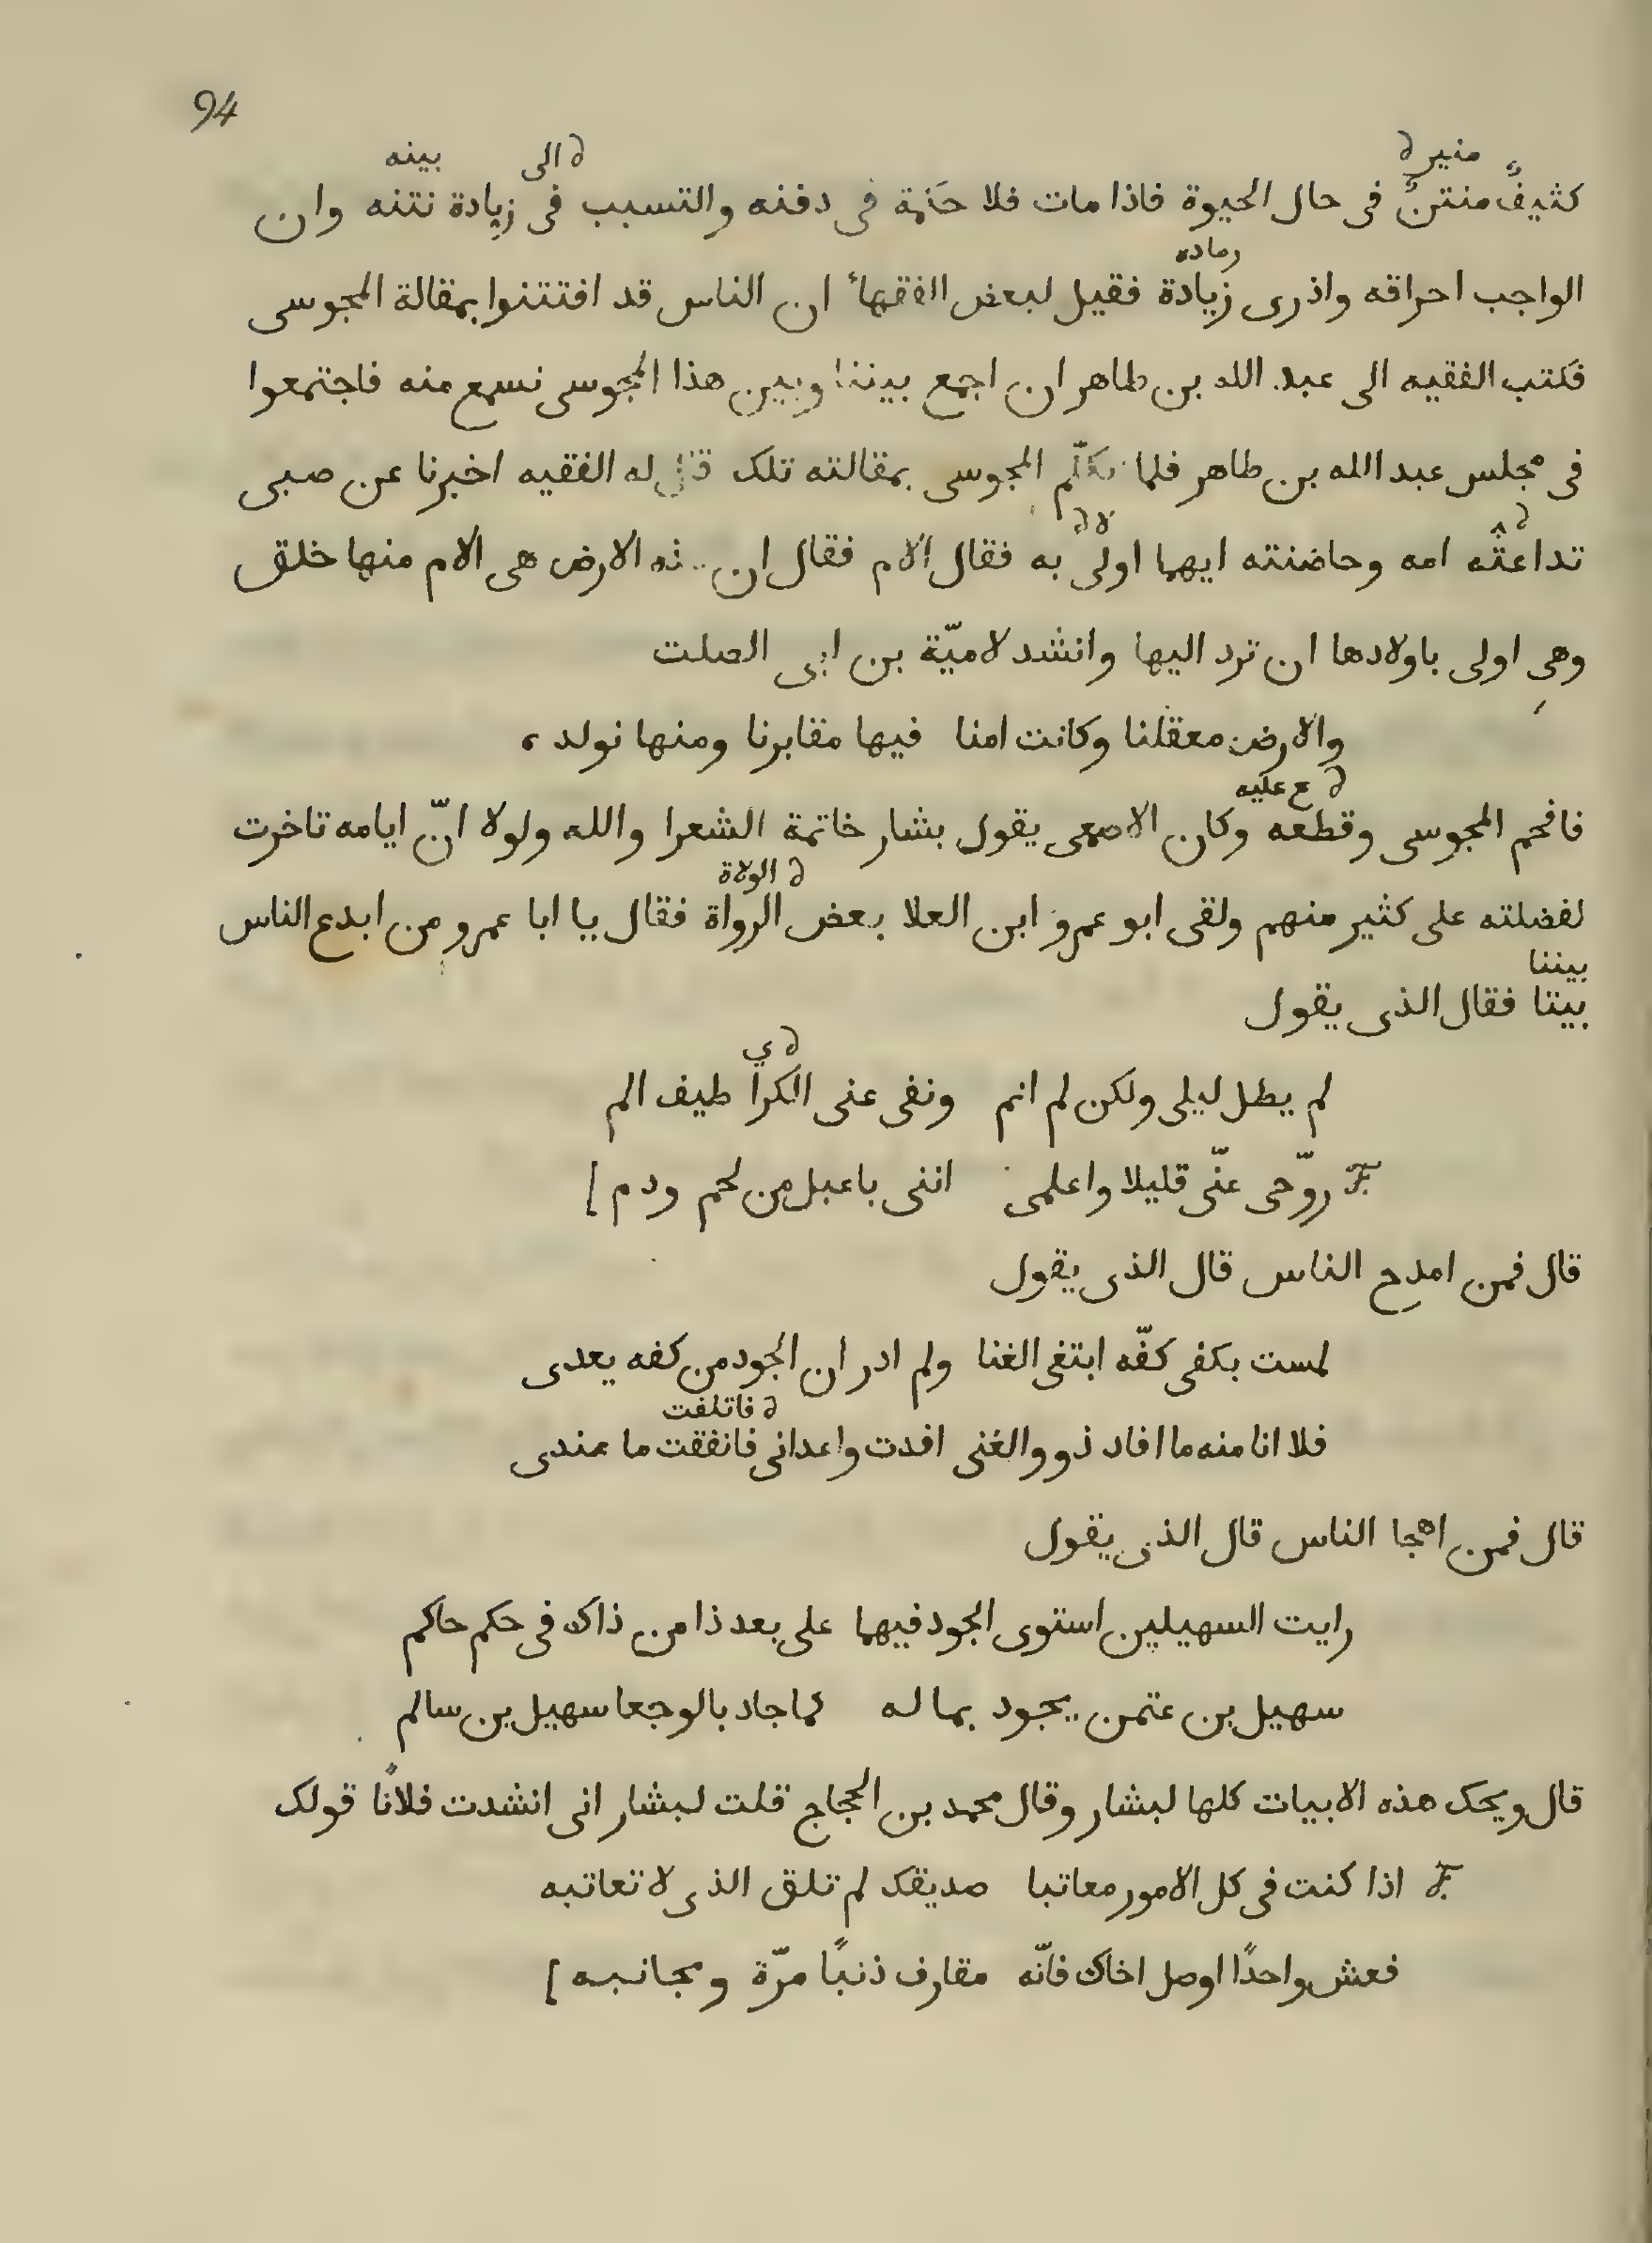 94
منير ∂ ∂ الى بينه
كثيفٌ منتنٌ فى حال الحيوة فاذا مات فلا حكمة فى دفنه والتسبب فى زيادة نتنه وان
رماده
الواجب احراقه واذرى زيادة فقيل لبعض الفقهاء ان الناس قد افتتنوا بمقالة المجوسى
فكتب الفقيه الى عبد الله بن طاهر ان اجمع بيننا وبين هذا المجوسى نسمع منه فاجتمعوا
فى مجلس عبد الله بن طاهر فلما تكلّم المجوسى بمقالته تلك قال له الفقيه اخبرنا عن صبى
تداعته امه وحاضنته ايهما اولى به فقال الام فقال ان هذه الارض هى الام منها خلق
وهى اولى باولادها ان ترد اليها وانشد لاميّة بن ابى الصلت
والارض معقلنا وكانت امنا فيها مقابرنا ومنها نولد
∂ ع عليه
فافحم المجوسى وقطعه وكان الاصمعى يقول بشار خاتمة الشعرا والله ولولا انّ ايامه تاخرت
∂ الولاة
لفضلته على كثير منهم ولقى ابو عمرو ابن العلا بعض الرواة فقال يا ابا عمرو من ابدع الناس
بيننا
بيتا فقال الذى يقول
∂ ي
لم يطل ليلى ولكن لم انم ونفى عنى الكرا طيف الم
روّحى عنّى قليلا واعلمى اننى باعبل من لحم ودم ]
قال فمن امدح الناس قال الذى يقول
لمست بكفى كفّه ابتغى الغنا ولم ادر ان الجود من كفه يعدى
∂ فاتلفت
فلا انا منه ما افاد ذوو الغنى افدت واعدانى فانفقت ما عندى
قال فمن اهجا الناس قال الذى يقول
رايت السهيلين استوى الجود فيهما على بعد ذا من ذاك فى حكم حاكم
سهيل بن عثمن يجود بماله كما جاد بالوجعا سهيل بن سالم
قال ويحك هذه الابيات كلها لبشار وقال محمد بن الحجاج قلت لبشار انى انشدت فلانًا قولك
اذا كنت فى كل الامور معاتبا صديقك لم تلق الذى لا تعاتبه
فعش واحدًا اوصل اخاك فانّه مقارف ذنبًا مرّة ومجانبه ]